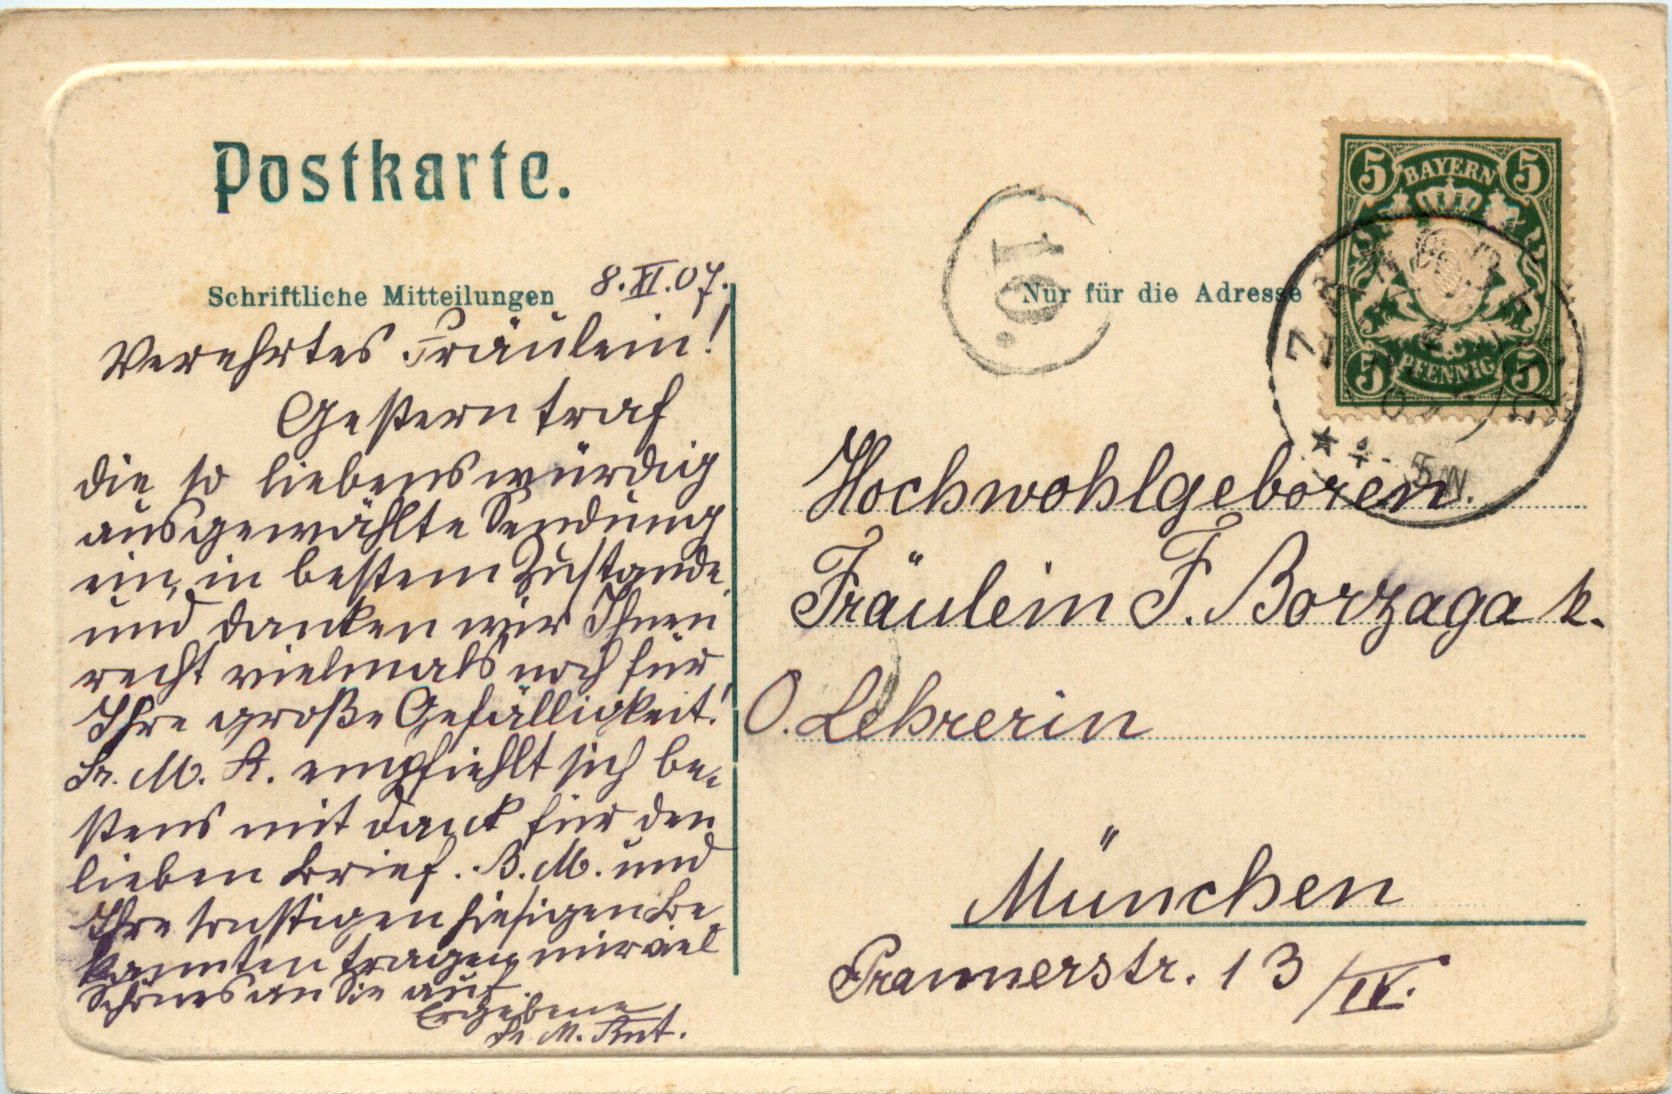 Postkarte.
Schriftliche Mitteilungen
8.XI.07.
Verehrtes Fräulein!
Gestern traf
die so liebenswürdig
ausgewählte Sendung
ein, in bestem Zustande
und danken wir Ihnen
recht vielmals noch für
Ihre große Gefälligkeit!
Sr. M. A. empfiehlt sich be-
stens mit Dank für den
lieben Brief. B. M. und
Ihre sonstigen hiesigen Be-
kannten tragen mir viel
Schönes an Sie auf
Ergebene
Sr. M.
10.
Nur für die Adresse
5 BAYERN 5
5 PFENNIG 5
Hochwohlgeboren
Fräulein F. Borzaga k.
O. Lehrerin
München
Prannerstr. 13/IV.